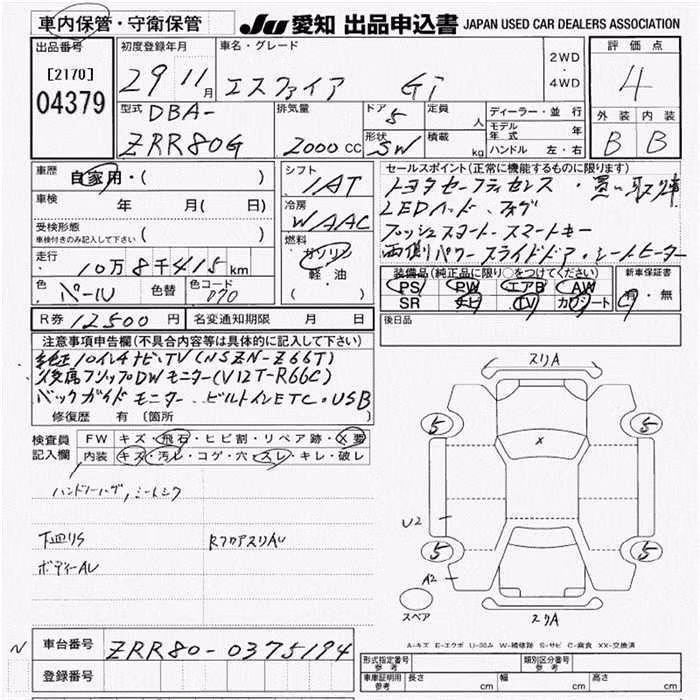 車内保管・守衛保管
JU 愛知 出品申込書 JAPAN USED CAR DEALERS ASSOCIATION
出品番号
[2170]
04379
初度登録年月
29 11月
車名・グレード
エスクァイア Gi
2WD
・
4WD
評価点
4
外装 内装
B B
型式
DBA-
ZRR80G
排気量
2000 CC
ドア
5
形状
SW
定員
人
積載
kg
ディーラー・並行
モデル年式 年
ハンドル 左・右
車歴
自家用・( )
車検
年 月( 日)
受検形態
車検付きのみ記入して下さい
( )
走行
10万8千415km
色
パール
色替
色コード
070
シフト
IAT
冷房
WAAC
燃料
ガソリン
軽・油
( )
セールスポイント(正常に機能するものに限ります)
トヨタセーフティセンス・買い取り車
LEDヘッド、フォグ
プッシュスタート・スマートキー
両側パワースライドドア・シートヒーター
装備品(純正品に限り○をつけてください)
PS PW エアB AW
SR ナビ TV カワシート
新車保証書
有・無
R券 12500円
名変通知期限 月 日
後日品
注意事項申告欄(不具合内容等は具体的に記入して下さい)
純正10インチナビ・TV(NSZN-Z66T)
後席フリップDWモニター(V12T-R66C)
バックガイドモニター、ビルトインETC・USB
修復歴 有〔箇所 〕
検査員
記入欄
FW キズ・飛石・ヒビ割・リペア跡・X要
内装 キズ・汚レ・コゲ・穴・スレ・キレ・破レ
ハンドルハゲ,シートシワ
下回りS
RフロアスリAU
ボディーAU
スリA
5 5
X
U2
5 5
A2
スペア
スリA
A-キズ E-エクボ U-凹み W-補修跡 S-サビ C-腐食 XX-交換済
N
車台番号 ZRR80-0375194
登録番号
形式指定番号
参考
類別区分番号
参考
車庫証明用
参考
長さ cm 幅 cm 高さ cm